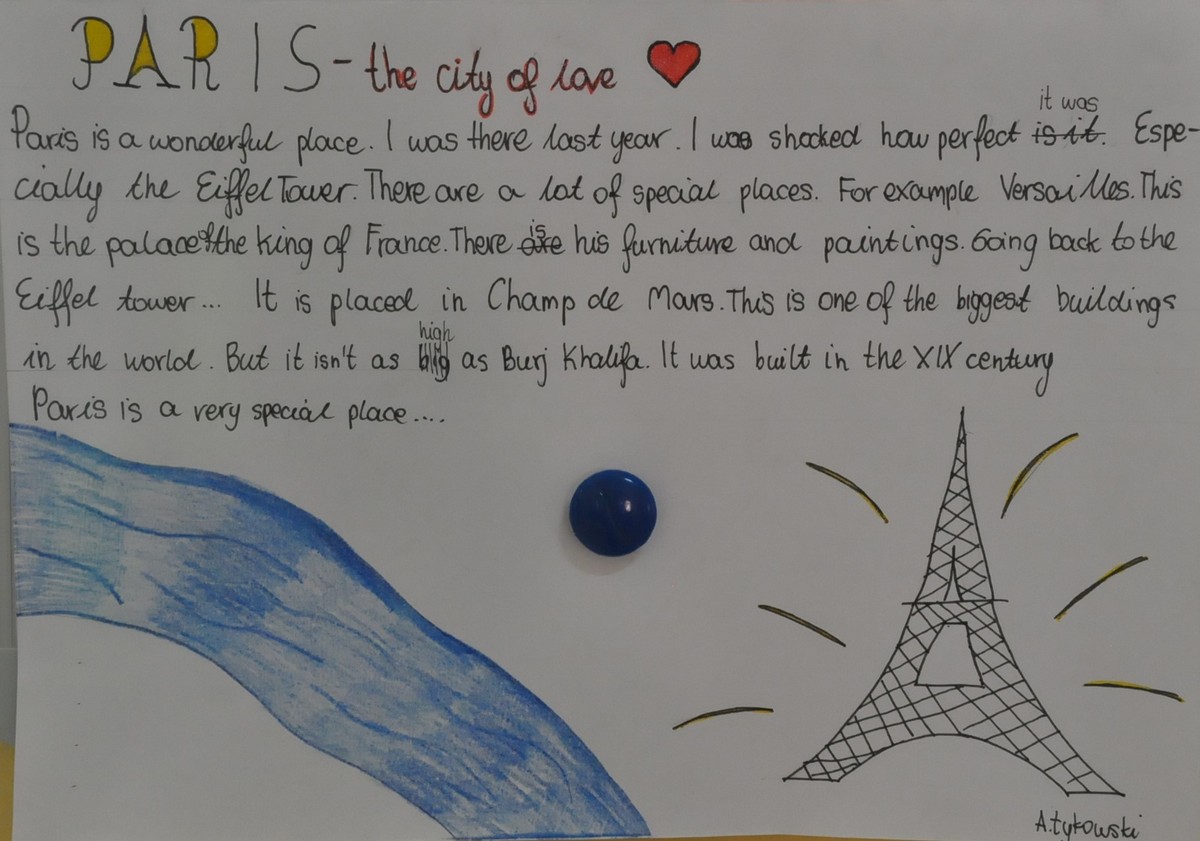 PARIS - the city of love
it was
Paris is a wonderful place. I was there last year. I was shocked how perfect is it. Espe-
cially the Eiffel Tower. There are a lot of special places. For example Versailles. This
is the palace of the king of France. There are is his furniture and paintings. Going back to the
Eiffel tower... It is placed in Champ de Mars. This is one of the biggest buildings
high
in the world. But it isn't as big as Burj Khalifa. It was built in the XIX century
Paris is a very special place....
A.tykowski